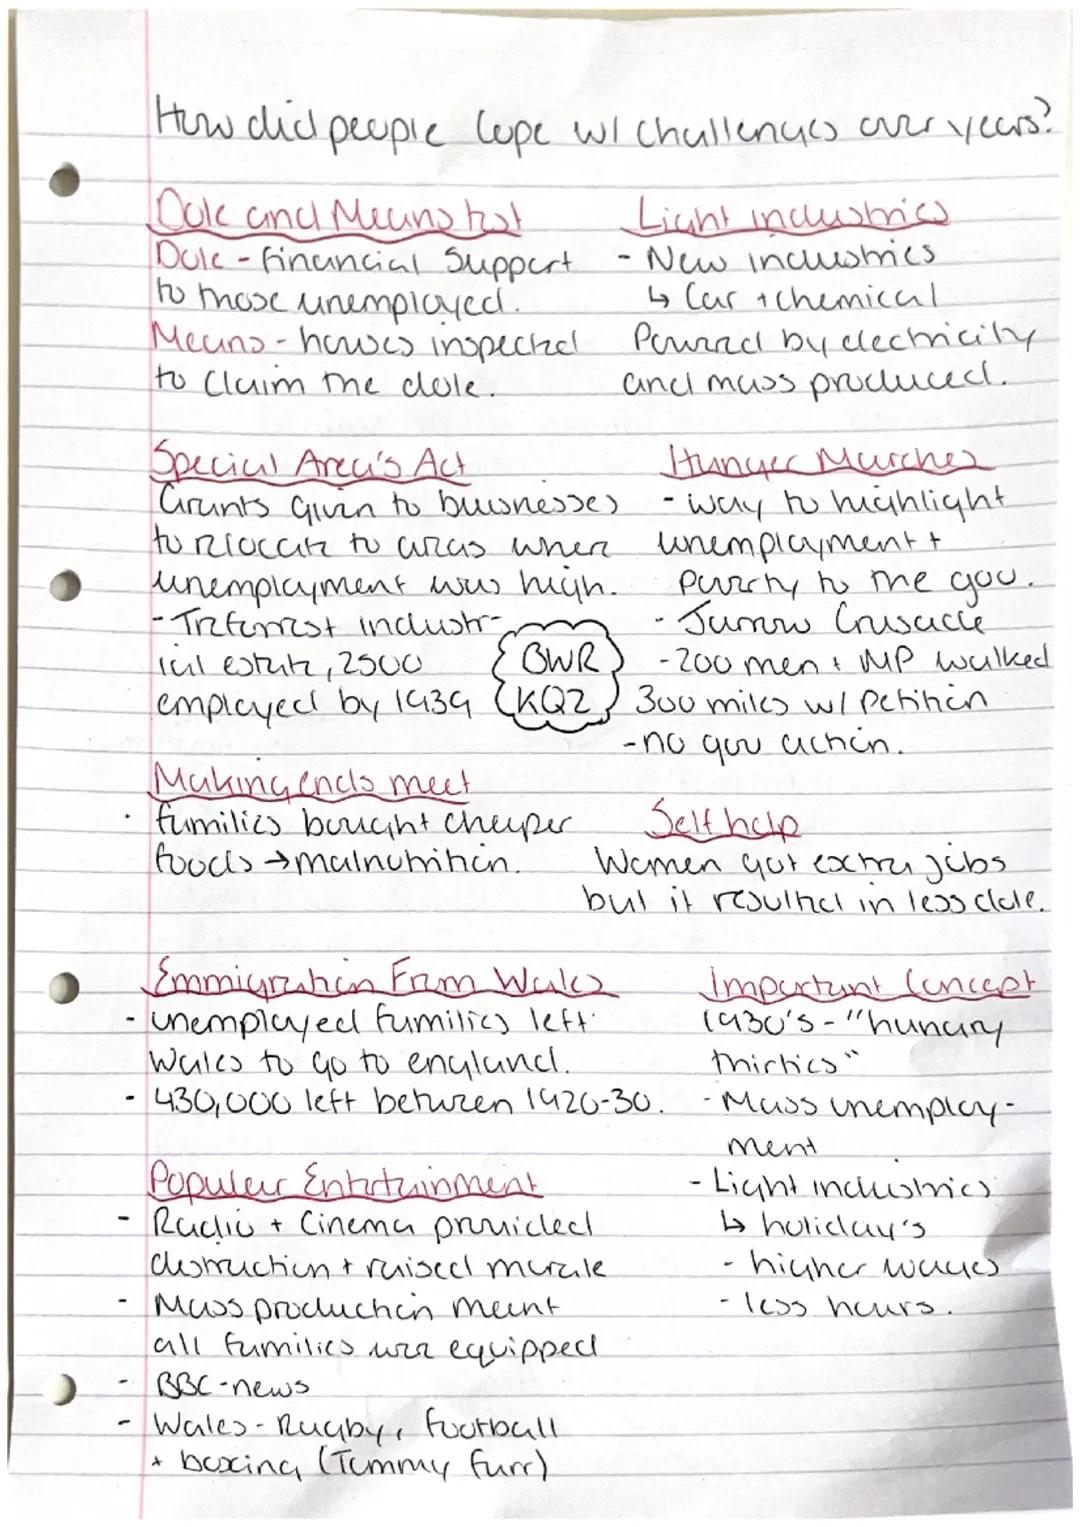 How did people Cope w/ Challenges over years?
Dole and Means test
Dole - financial Support
to those unemployed.
Means - houses inspected
to Claim the dole.
Light industries
- New industries
↳ Car + chemical
Powered by electricity
and mass produced.
Special Area's Act
Grants Given to businesses
to relocate to areas where
unemployment was high.
- Treforest industr-
ial estate, 2500
employed by 1939
BWR
KQ2
Hunger Marches
- way to highlight
unemployment +
poverty to the gov.
- Jarrow Crusade
- 200 men + MP walked
300 miles w/ Petition
- no gov action.
Making ends meet
· families bought cheaper
foods → malnutrition.
Self help
Women got extra jobs
but it resulted in less dole.
Emmigration From Wales
- unemployed families left
Wales to go to england.
- 430,000 left between 1920-30.
Important Concept
1930's - "hungry
thirties"
- Mass unemploy-
ment
- Light industries
↳ holiday's
- higher wages
- less hours.
Popular Entertainment
- Radio + Cinema provided
distruction + raised morale
- Mass production meant
all families were equipped
- BBC - news
- Wales - Rugby, football
+ boxing (Tommy Farr)